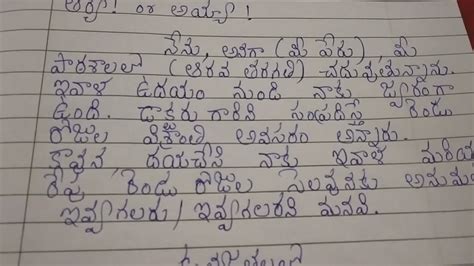 ఆర్యా! or అయ్యా!
నేను, అనగా (మీ పేరు) మీ
పాఠశాలలో (తరవ తరగతి) చదువుతున్నాను.
ఇవాళ ఉదయం నుండి నాకు జ్వరంగా
ఉంది. డాక్టరు గారిని సంప్రదిస్తే రెండు
రోజుల విశ్రాంతి అవసరం అన్నారు.
కావున, దయచేసి నాకు ఇవాళ మరియు
రేపు రెండు రోజుల సెలవునకు అనుమ
ఇవ్వగలరు/ ఇవ్వగలరని మనవి.